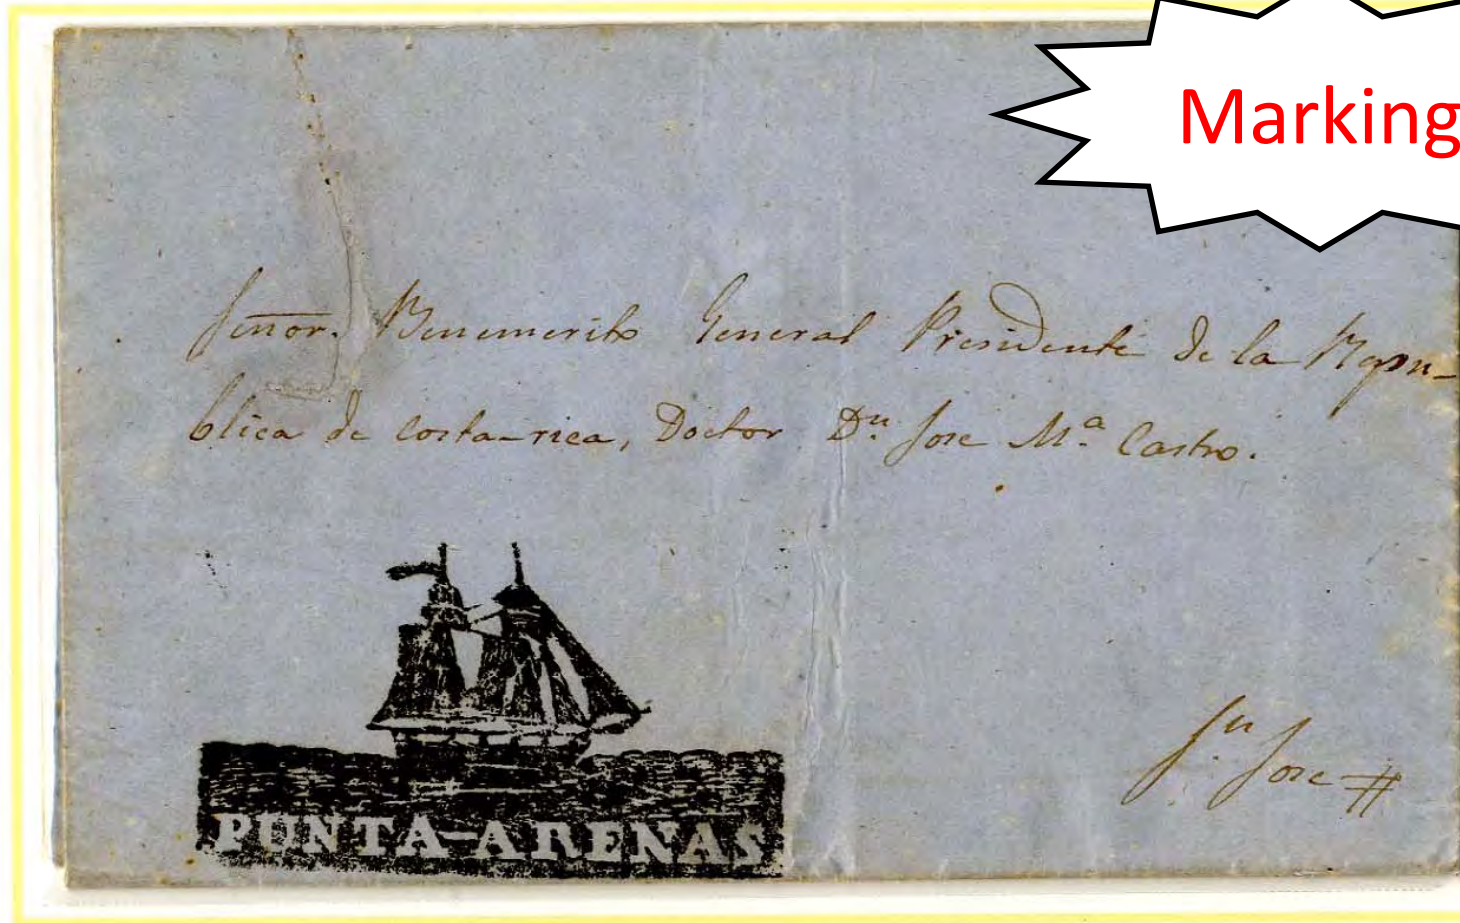 Marking
Señor. Benemerito General Presidente de la Repu-
blica de Costa-rica, Doctor Dn Jose Mª Castro.
Sn Jose #
PUNTA-ARENAS